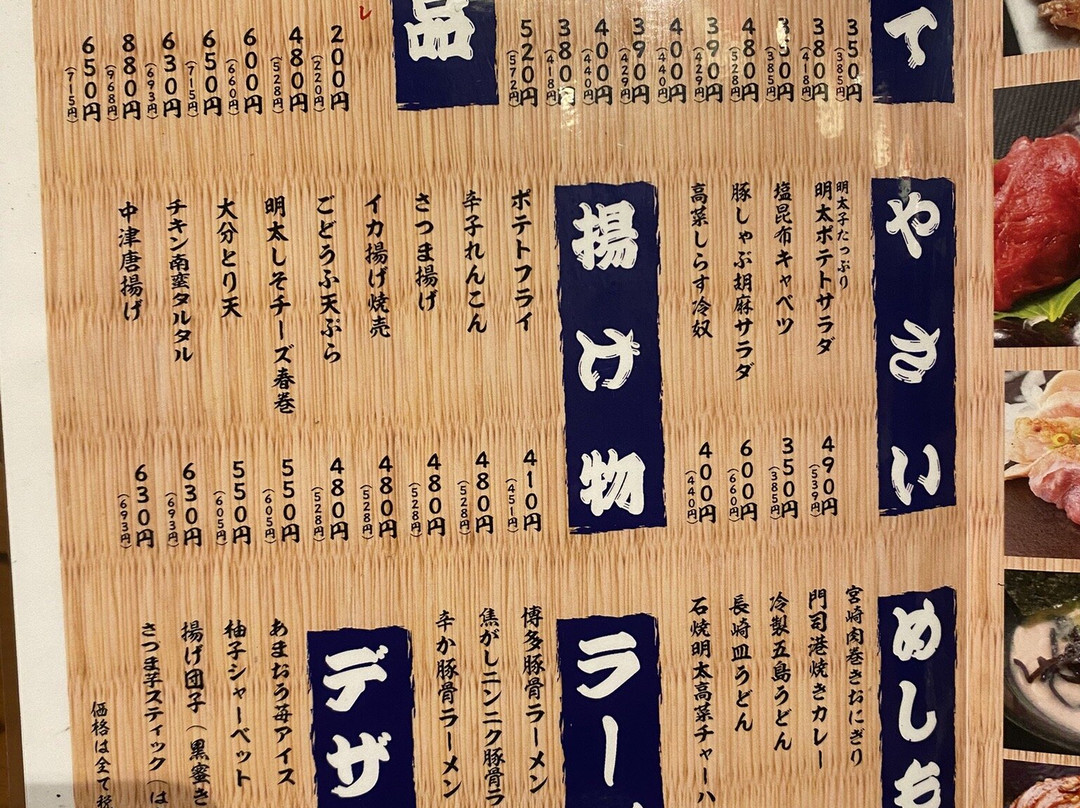 て
350円
(385円)
380円
(418円)
350円
(385円)
480円
(528円)
390円
(429円)
400円
(440円)
390円
(429円)
400円
(440円)
380円
(418円)
520円
(572円)
品
200円
(220円)
480円
(528円)
600円
(660円)
650円
(715円)
630円
(693円)
880円
(968円)
650円
(715円)
やさい
明太子たっぷり
明太ポテトサラダ
490円
(539円)
塩昆布キャベツ
350円
(385円)
豚しゃぶ胡麻サラダ
600円
(660円)
高菜しらす冷奴
400円
(440円)
揚げ物
ポテトフライ
410円
(451円)
辛子れんこん
480円
(528円)
さつま揚げ
480円
(528円)
イカ揚げ焼売
480円
(528円)
ごどうふ天ぷら
480円
(528円)
明太しそチーズ春巻
550円
(605円)
大分とり天
550円
(605円)
チキン南蛮タルタル
630円
(693円)
中津唐揚げ
630円
(693円)
めし
宮崎肉巻きおにぎり
門司港焼きカレー
冷製五島うどん
長崎皿うどん
石焼明太高菜チャーハ
ラー
博多豚骨ラーメン
焦がしニンニク豚骨ラ
辛か豚骨ラーメン
デザ
あまおう苺アイス
柚子シャーベット
揚げ団子(黒蜜き
さつま芋スティック(は
価格は全て税